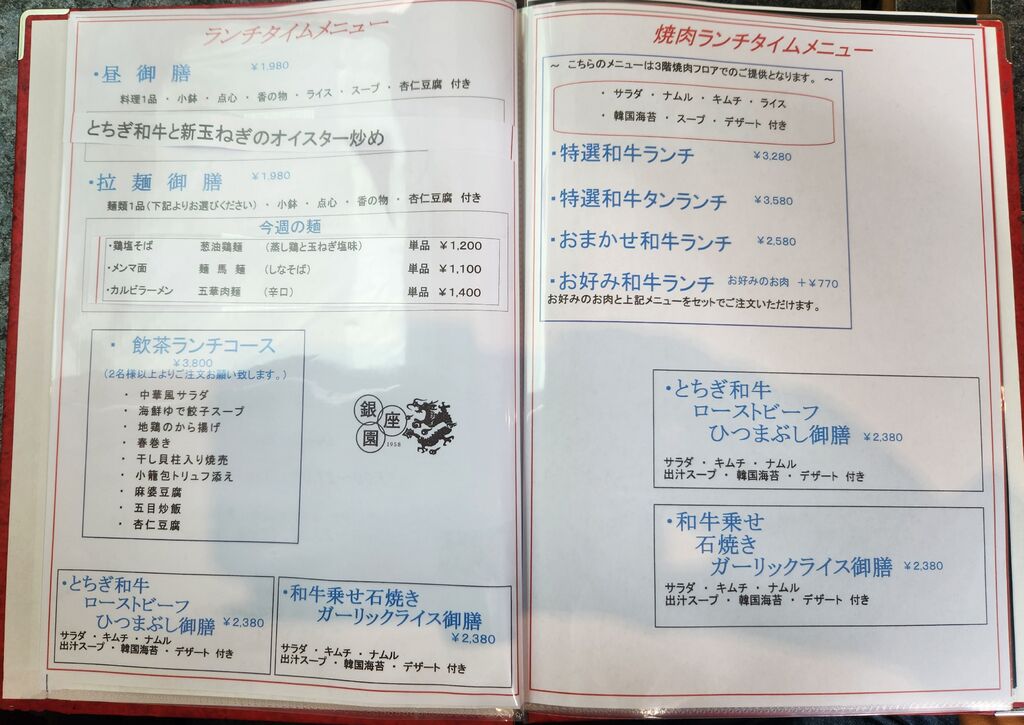 ランチタイムメニュー
・昼 御 膳 ￥1,980
料理1品 ・ 小鉢 ・ 点心 ・ 香の物 ・ ライス ・ スープ ・ 杏仁豆腐 付き
とちぎ和牛と新玉ねぎのオイスター炒め
・拉 麺 御 膳 ￥1,980
麺類1品（下記よりお選びください） ・ 小鉢 ・ 点心 ・ 香の物 ・ 杏仁豆腐 付き
今週の麺
・鶏塩そば 葱油鶏麵 （蒸し鶏と玉ねぎ塩味） 単品 ￥1,200
・メンマ面 麺 馬 麺 （しなそば） 単品 ￥1,100
・カルビラーメン 五華肉麺 （辛口） 単品 ￥1,400
・ 飲茶ランチコース
￥3,800
（2名様以上よりご注文お願い致します。）
・ 中華風サラダ
・ 海鮮ゆで餃子スープ
・ 地鶏のから揚げ
・ 春巻き
・ 干し貝柱入り焼売
・ 小籠包トリュフ添え
・ 麻婆豆腐
・ 五目炒飯
・ 杏仁豆腐
銀座園
1958
・とちぎ和牛
ローストビーフ
ひつまぶし御膳 ￥2,380
サラダ ・ キムチ ・ ナムル
出汁スープ ・ 韓国海苔 ・ デザート 付き
・和牛乗せ石焼き
ガーリックライス御膳
￥2,380
サラダ ・ キムチ ・ ナムル
出汁スープ ・ 韓国海苔 ・ デザート 付き
焼肉ランチタイムメニュー
～ こちらのメニューは3階焼肉フロアでのご提供となります。 ～
・ サラダ ・ ナムル ・ キムチ ・ ライス
・ 韓国海苔 ・ スープ ・ デザート 付き
・特選和牛ランチ ￥3,280
・特選和牛タンランチ ￥3,580
・おまかせ和牛ランチ ￥2,580
・お好み和牛ランチ お好みのお肉 ＋￥770
お好みのお肉と上記メニューをセットでご注文いただけます。
・とちぎ和牛
ローストビーフ
ひつまぶし御膳 ￥2,380
サラダ ・ キムチ ・ ナムル
出汁スープ ・ 韓国海苔 ・ デザート 付き
・和牛乗せ
石焼き
ガーリックライス御膳 ￥2,380
サラダ ・ キムチ ・ ナムル
出汁スープ ・ 韓国海苔 ・ デザート 付き